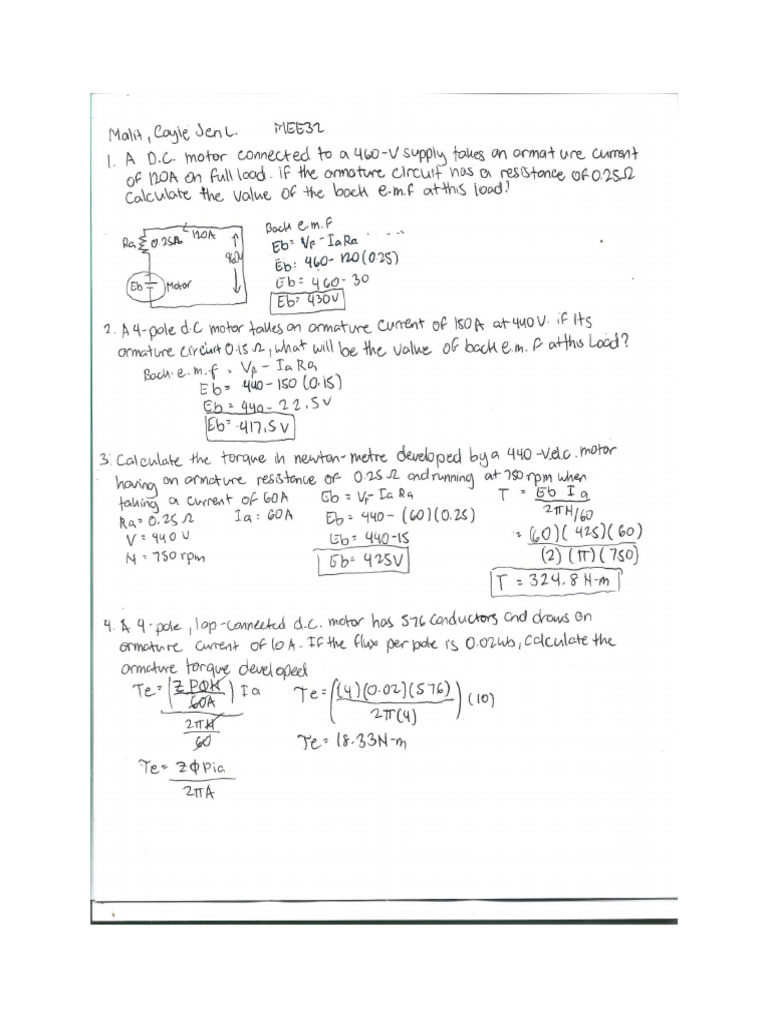 Malit, Cayle Jen L. MEE32
1. A D.C. motor connected to a 460-V supply takes an armature current
of 120A on full load. if the armature circuit has a resistance of 0.25Ω
Calculate the value of the back e.m.f at this load?
Ra 0.25Ω 120A
460
Eb Motor
Back e.m.f
Eb = Vf - IaRa
Eb: 460 - 120(0.25)
Eb = 460 - 30
Eb = 430V
2. A 4-pole d.c motor takes an armature current of 150A at 440V. if its
armature circuit 0.15Ω, what will be the value of back e.m.f at this Load?
Back.e.m.f = Vf - IaRa
Eb = 440 - 150 (0.15)
Eb = 440 - 22.5V
Eb = 417.5V
3. Calculate the torque in newton-metre developed by a 440-V d.c. motor
having an armature resistance of 0.25Ω and running at 750 rpm when
taking a current of 60A
Ra = 0.25Ω Ia: 60A
V = 440V
N = 750 rpm
Eb = Vf - IaRa
Eb = 440 - (60)(0.25)
Eb = 440-15
Eb = 425V
T = Eb Ia
2πN/60
= (60)(425)(60)
(2)(π)(750)
T = 324.8 N-m
4. A 4-pole, lap-connected d.c. motor has 576 conductors and draws an
armature current of 10A. If the flux per pole is 0.02wb, calculate the
armature torque developed
Te = (ZPΦN) Ia
60A
2πN
60
Te = ZΦPia
2πA
Te = ((4)(0.02)(576)) (10)
2π(4)
Te = 18.33N-m